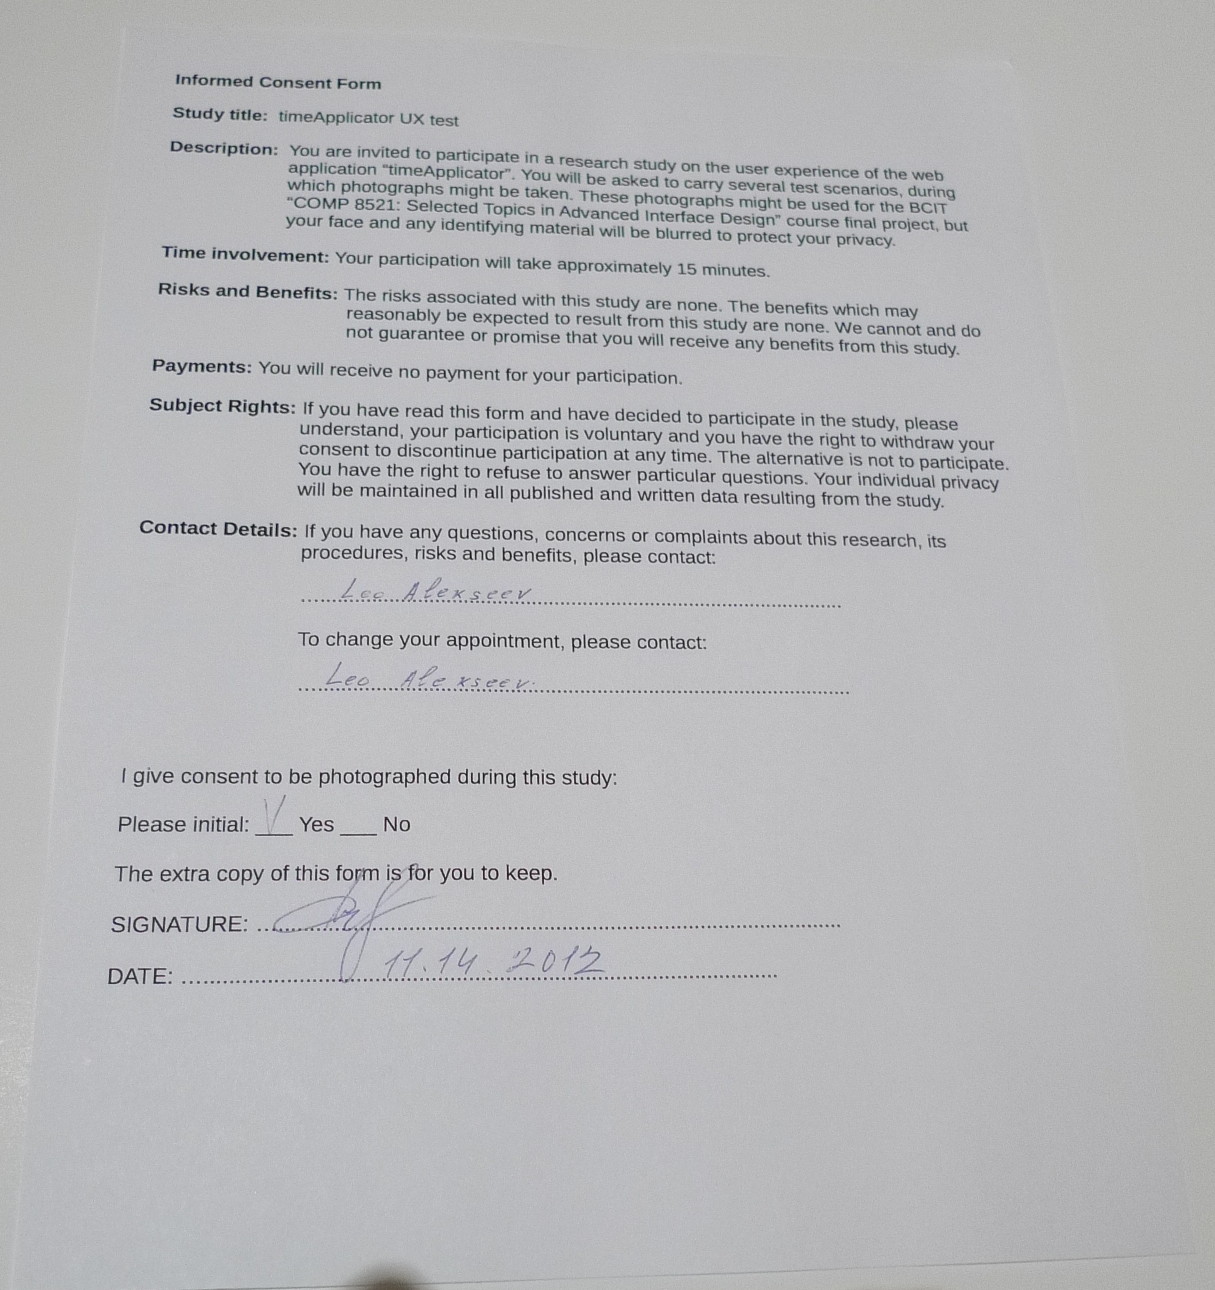 Informed Consent Form
Study title: timeApplicator UX test
Description: You are invited to participate in a research study on the user experience of the web
application “timeApplicator”. You will be asked to carry several test scenarios, during
which photographs might be taken. These photographs might be used for the BCIT
“COMP 8521: Selected Topics in Advanced Interface Design” course final project, but
your face and any identifying material will be blurred to protect your privacy.
Time involvement: Your participation will take approximately 15 minutes.
Risks and Benefits: The risks associated with this study are none. The benefits which may
reasonably be expected to result from this study are none. We cannot and do
not guarantee or promise that you will receive any benefits from this study.
Payments: You will receive no payment for your participation.
Subject Rights: If you have read this form and have decided to participate in the study, please
understand, your participation is voluntary and you have the right to withdraw your
consent to discontinue participation at any time. The alternative is not to participate.
You have the right to refuse to answer particular questions. Your individual privacy
will be maintained in all published and written data resulting from the study.
Contact Details: If you have any questions, concerns or complaints about this research, its
procedures, risks and benefits, please contact:
Leo Alekseev
To change your appointment, please contact:
Leo Alekseev
I give consent to be photographed during this study:
Please initial: V Yes ___ No
The extra copy of this form is for you to keep.
SIGNATURE:
DATE: 11.14.2012